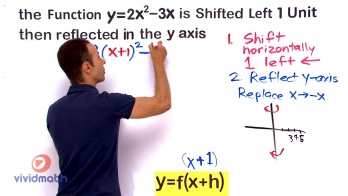 the Function y=2x²-3x is Shifted Left 1 Unit
then reflected in the y axis
(x+1)²-
1. Shift
horizontally
1 left ←
2. Reflect y-axis
Replace x→-x
(x+1)
y=f(x+h)
vividmath